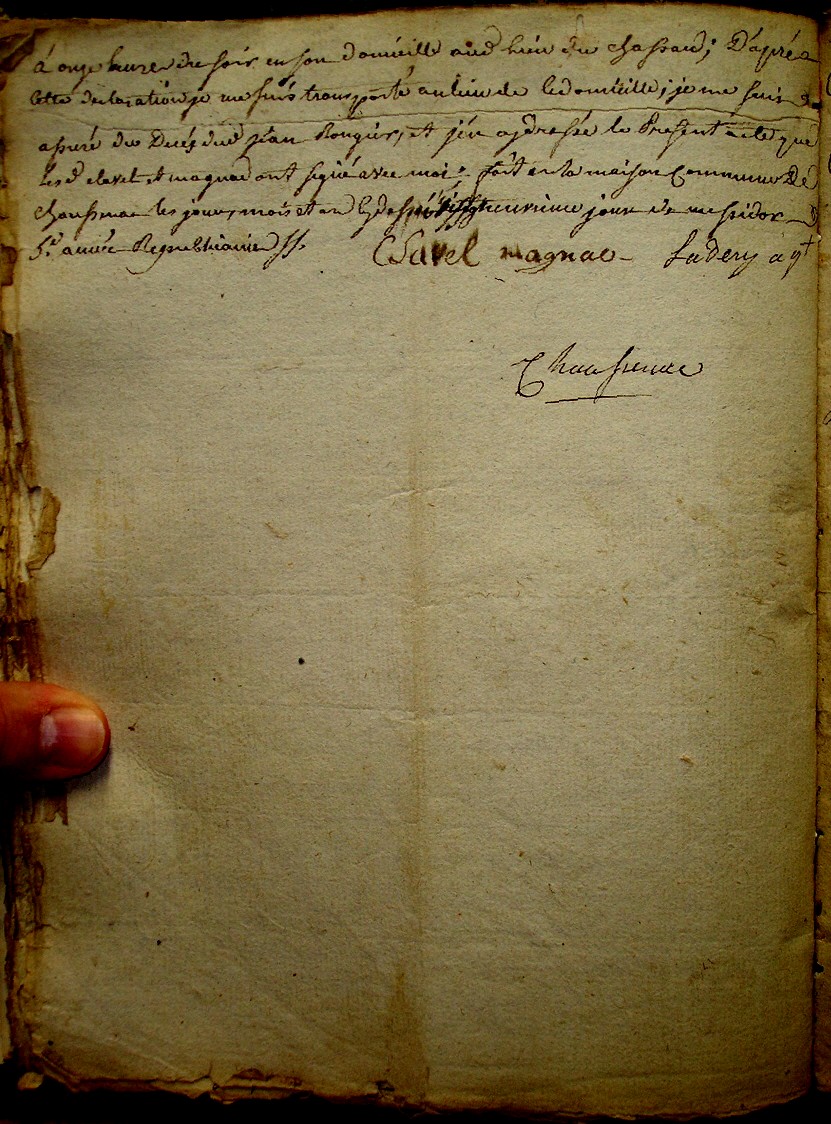 à onze heures du soir en son domicille aud. lieu du chassan; D'après
cette declaration je me suis transporté au lieu de ce domicille; je me suis
assuré du Decés dud. jean Rougier, et j'en ay dressé le Present acte que
les d. clavel et magnac ont signé avec moi. fait en la maison Commune De
chaussenac les jour, mois et an neuvieme jour de messidor
5.e année Republicaine
Clavel magnac Ladery agt
Chaussenac